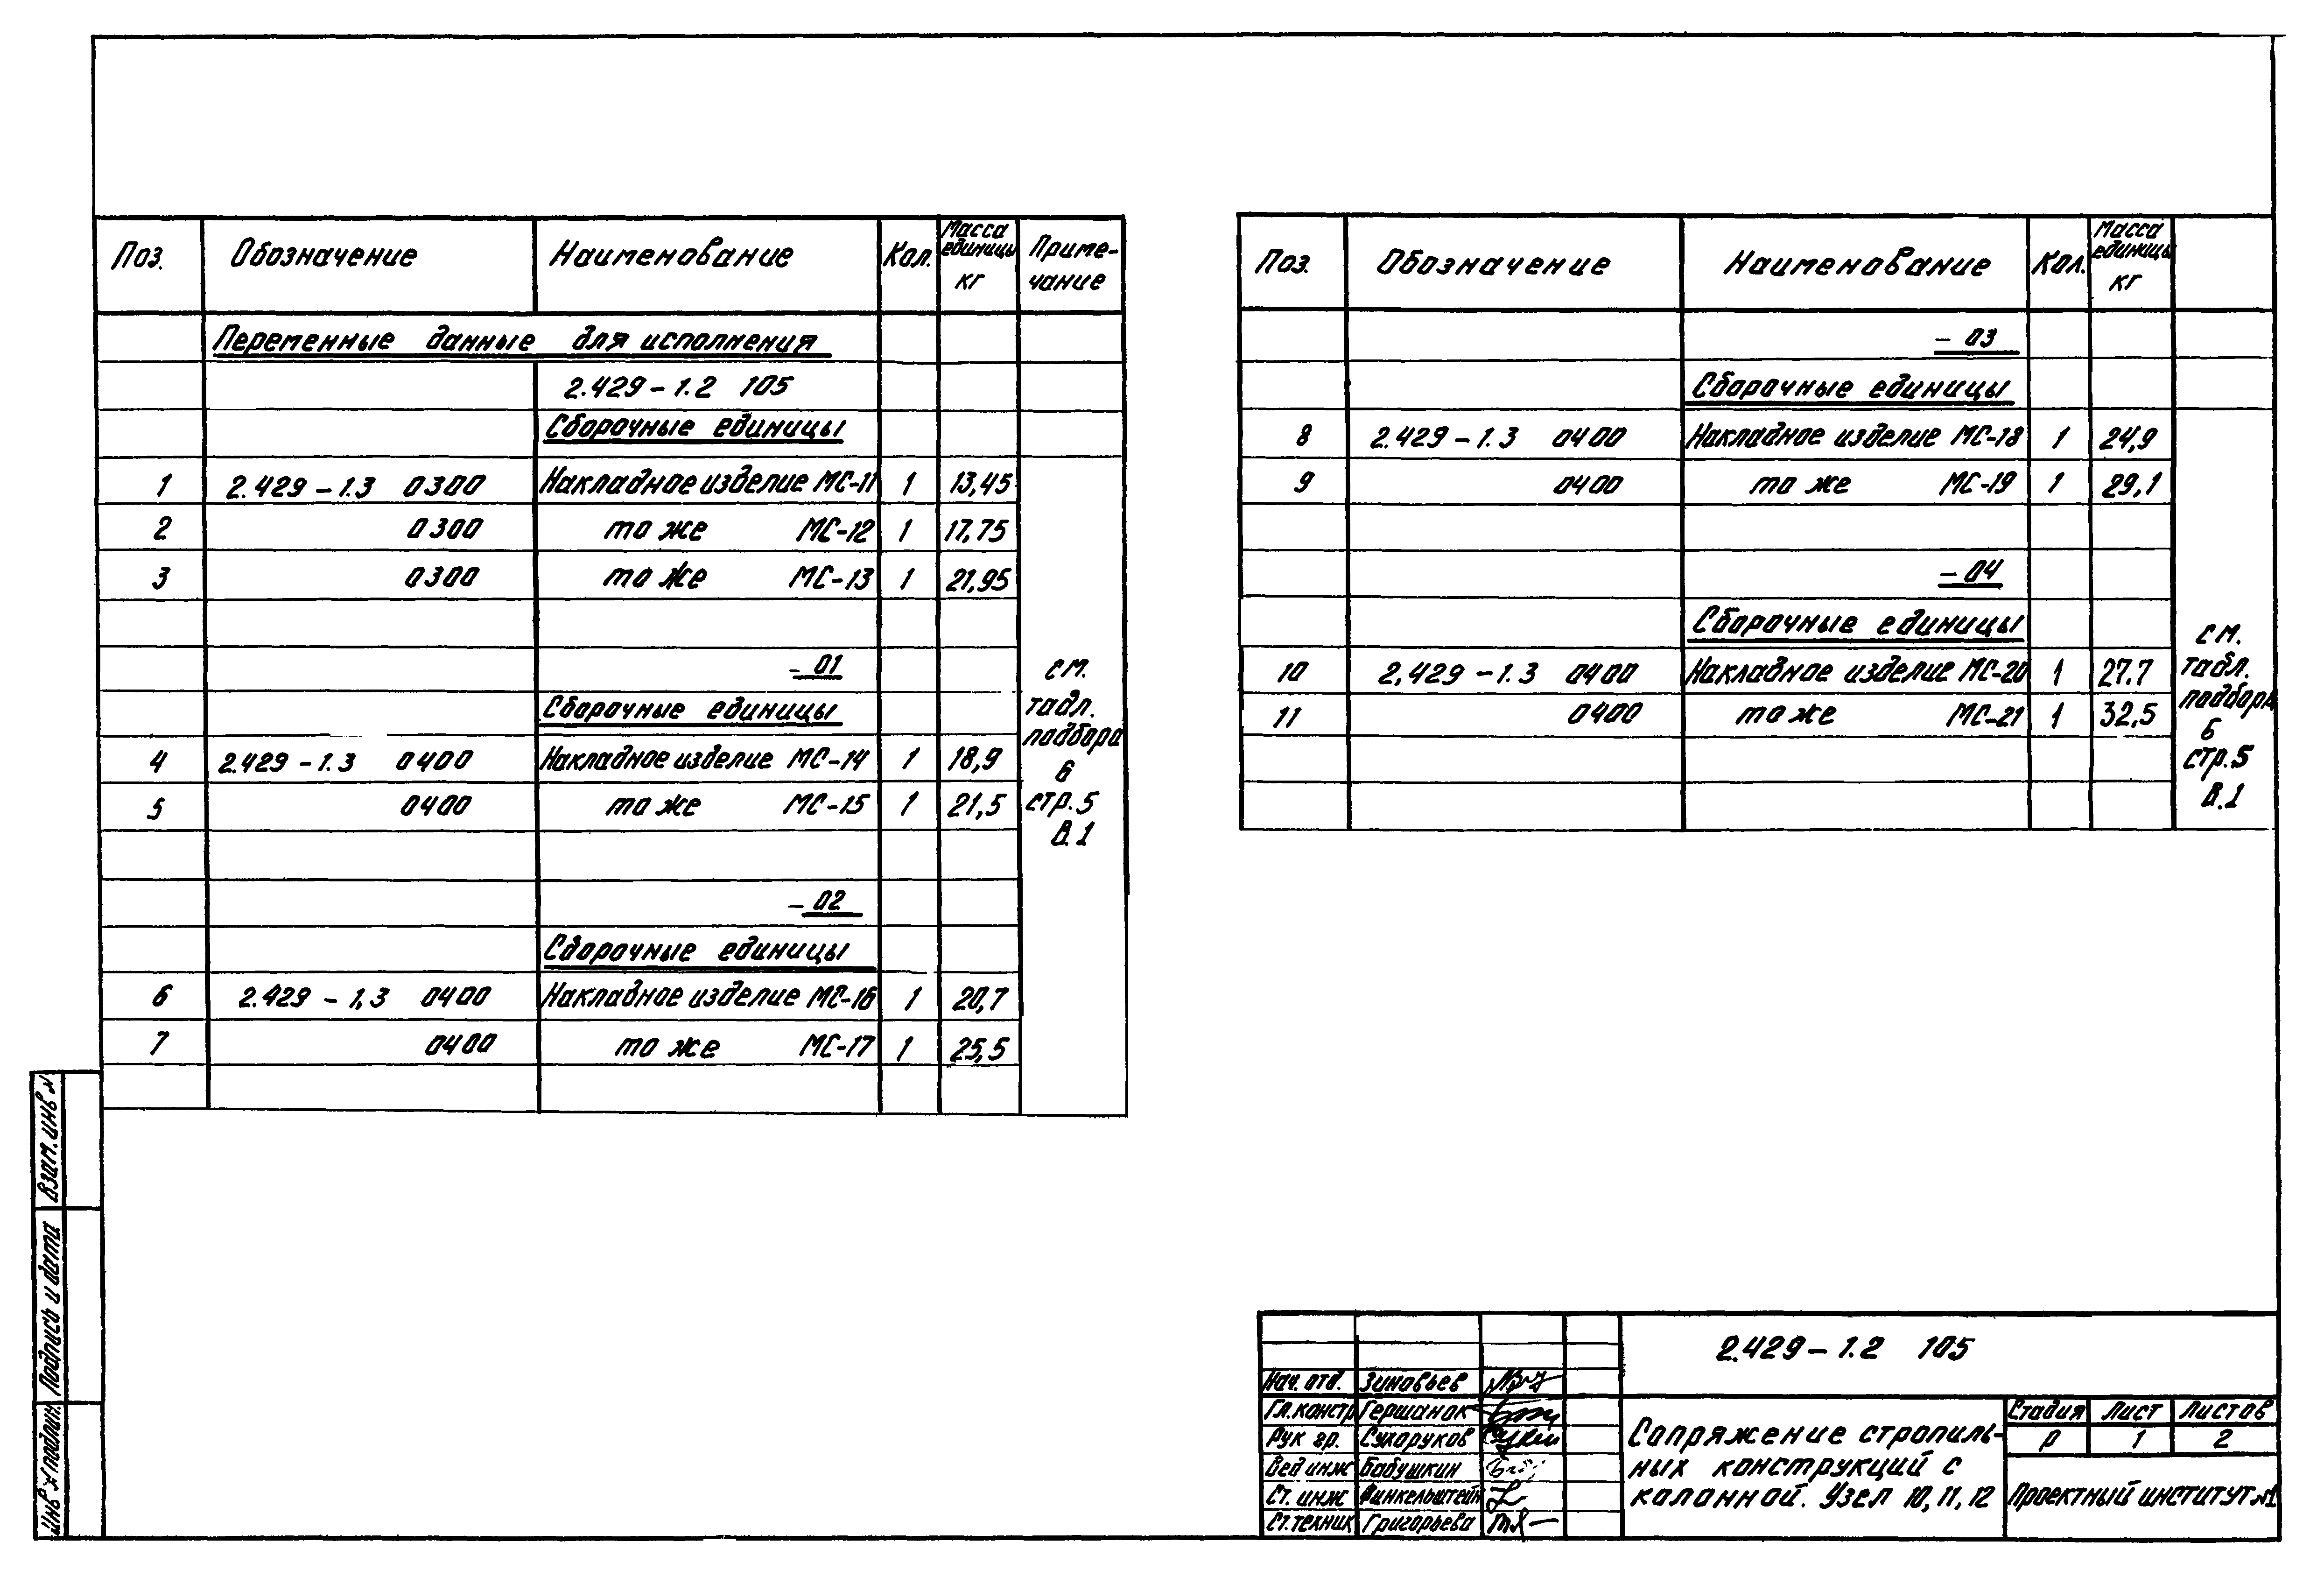 Поз. Обозначение Наименование Кол. Масса единицы кг Приме-чание
Переменные данные для исполнения
2.429-1.2 105
Сборочные единицы
1 2.429-1.3 0300 Накладное изделие МС-11 1 13,45
2 0300 то же МС-12 1 17,75
3 0300 то же МС-13 1 21,95
- 01
Сборочные единицы
4 2.429-1.3 0400 Накладное изделие МС-14 1 18,9
5 0400 то же МС-15 1 21,5
- 02
Сборочные единицы
6 2.429-1,3 0400 Накладное изделие МС-16 1 20,7
7 0400 то же МС-17 1 25,5
см.
табл.
подбора
в
стр.5
В.1
Поз. Обозначение Наименование Кол. Масса единицы кг
- 03
Сборочные единицы
8 2.429-1.3 0400 Накладное изделие МС-18 1 24,9
9 0400 то же МС-19 1 29,1
- 04
Сборочные единицы
10 2,429-1.3 0400 Накладное изделие МС-20 1 27.7
11 0400 то же МС-21 1 32,5
см.
табл.
подбора
в
стр.5
В.1
Взам. инв №
Подпись и дата
Инв № подлин.
2.429-1.2 105
Нач. отд. Зиновьев
Гл. констр Гершанок
Рук гр. Сухоруков
Вед инж Бабушкин
Ст. инж Финкельштейн
Ст. техник Григорьева
Сопряжение стропиль-
ных конструкций с
колонной. Узел 10, 11, 12
Стадия Лист Листов
Р 1 2
Проектный институт №1